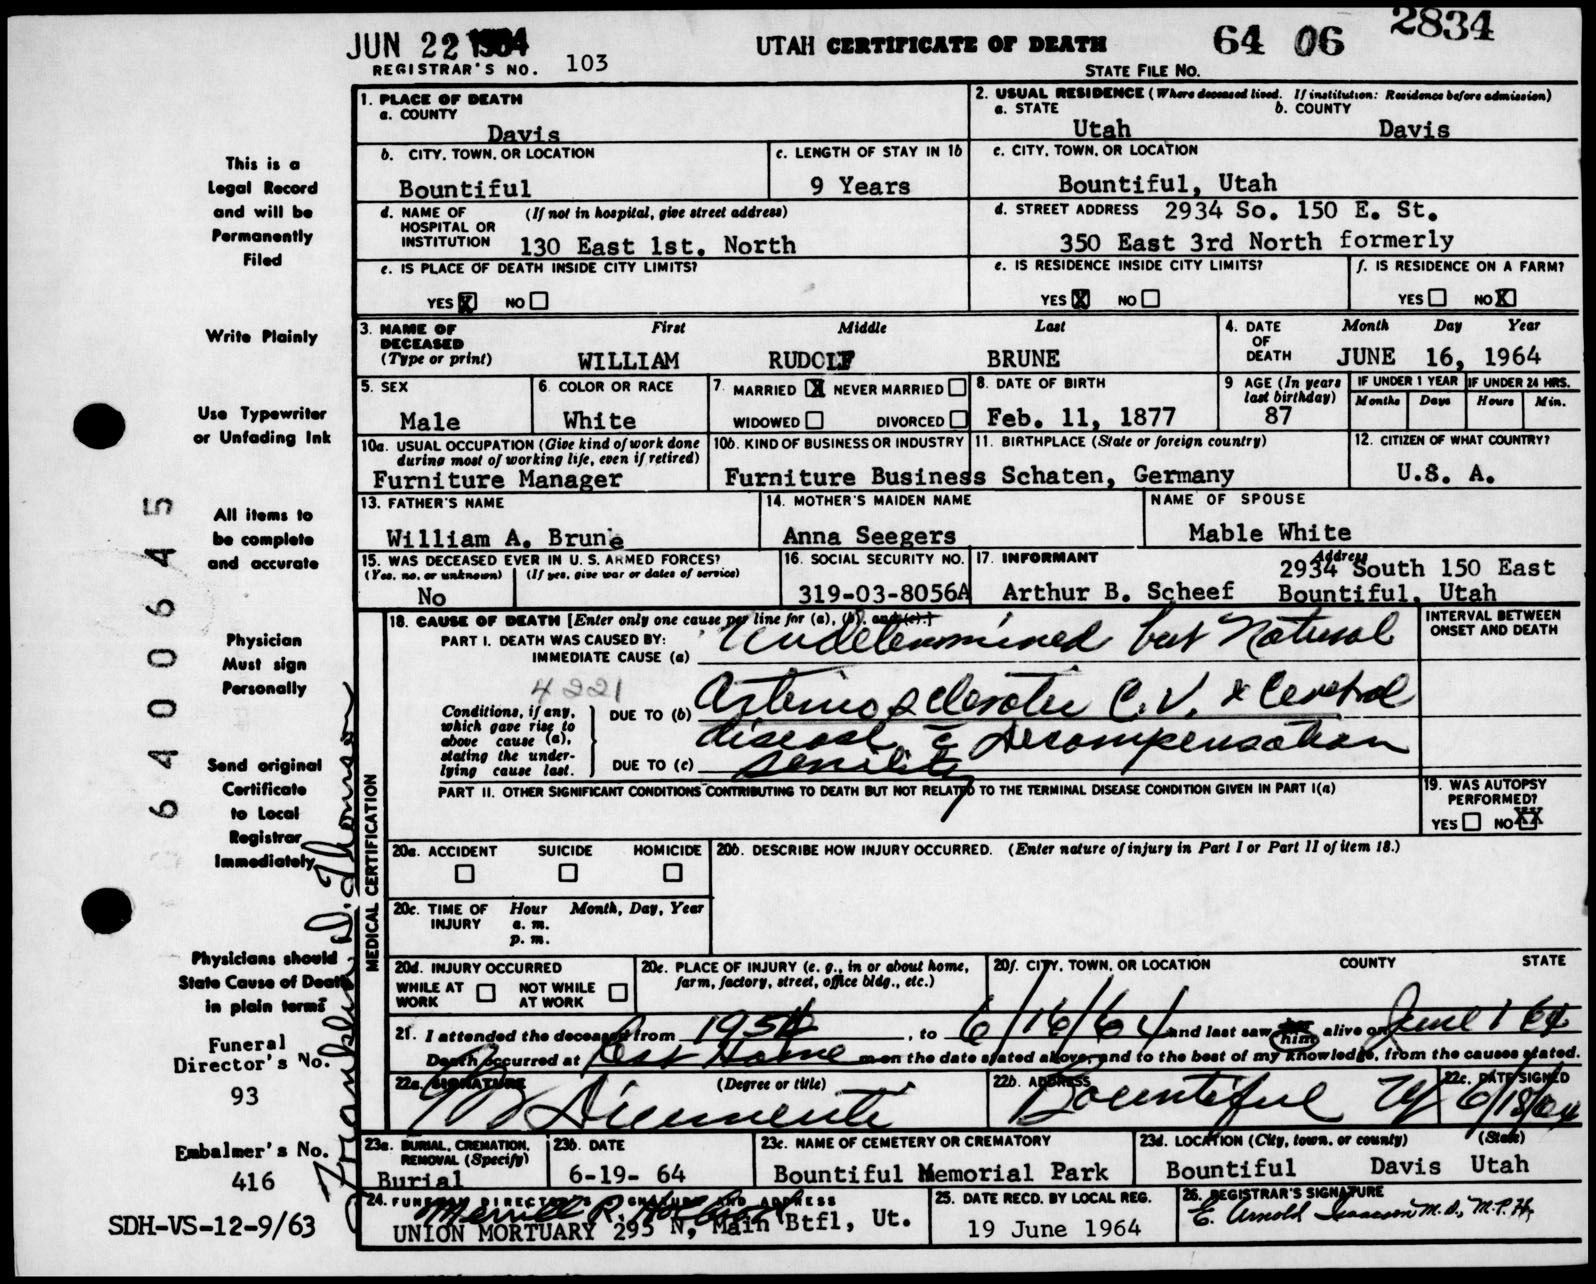 JUN 22 1964
UTAH CERTIFICATE OF DEATH
64 06 2834
REGISTRAR'S NO. 103
STATE FILE NO.
1. PLACE OF DEATH
a. COUNTY
Davis
2. USUAL RESIDENCE (Where deceased lived. If institution: Residence before admission)
a. STATE b. COUNTY
Utah Davis
b. CITY, TOWN, OR LOCATION
Bountiful
c. LENGTH OF STAY IN 1b
9 Years
c. CITY, TOWN, OR LOCATION
Bountiful, Utah
d. NAME OF HOSPITAL OR INSTITUTION (If not in hospital, give street address)
130 East 1st. North
d. STREET ADDRESS 2934 So. 150 E. St.
350 East 3rd North formerly
e. IS PLACE OF DEATH INSIDE CITY LIMITS?
YES X NO
e. IS RESIDENCE INSIDE CITY LIMITS?
YES X NO
f. IS RESIDENCE ON A FARM?
YES NO X
3. NAME OF DECEASED (Type or print)
First Middle Last
WILLIAM RUDOLF BRUNE
4. DATE OF DEATH
Month Day Year
JUNE 16, 1964
5. SEX
Male
6. COLOR OR RACE
White
7. MARRIED X NEVER MARRIED
WIDOWED DIVORCED
8. DATE OF BIRTH
Feb. 11, 1877
9 AGE (In years last birthday)
87
IF UNDER 1 YEAR
Months Days
IF UNDER 24 HRS.
Hours Min.
10a. USUAL OCCUPATION (Give kind of work done
during most of working life, even if retired)
Furniture Manager
10b. KIND OF BUSINESS OR INDUSTRY
Furniture Business
11. BIRTHPLACE (State or foreign country)
Schaten, Germany
12. CITIZEN OF WHAT COUNTRY?
U.S. A.
13. FATHER'S NAME
William A. Brune
14. MOTHER'S MAIDEN NAME
Anna Seegers
NAME OF SPOUSE
Mable White
15. WAS DECEASED EVER IN U. S. ARMED FORCES?
(Yes, no, or unknown) (If yes, give war or dates of service)
No
16. SOCIAL SECURITY NO.
319-03-8056A
17. INFORMANT Address
Arthur B. Scheef
2934 South 150 East
Bountiful, Utah
MEDICAL CERTIFICATION
18. CAUSE OF DEATH [Enter only one cause per line for (a), (b), and (c).]
INTERVAL BETWEEN
ONSET AND DEATH
PART I. DEATH WAS CAUSED BY:
IMMEDIATE CAUSE (a) Undetermined but Natural
4221
Conditions, if any,
which gave rise to
above cause (a),
stating the under-
lying cause last.
DUE TO (b) Arterio sclerotic C.V. & Cerebral
disease c̄ decompensation
DUE TO (c) senility
PART II. OTHER SIGNIFICANT CONDITIONS CONTRIBUTING TO DEATH BUT NOT RELATED TO THE TERMINAL DISEASE CONDITION GIVEN IN PART I(a)
19. WAS AUTOPSY
PERFORMED?
YES NO XX
20a. ACCIDENT SUICIDE HOMICIDE
20b. DESCRIBE HOW INJURY OCCURRED. (Enter nature of injury in Part I or Part II of item 18.)
20c. TIME OF INJURY
Hour Month, Day, Year
a. m.
p. m.
20d. INJURY OCCURRED
WHILE AT WORK NOT WHILE AT WORK
20e. PLACE OF INJURY (e. g., in or about home,
farm, factory, street, office bldg., etc.)
20f. CITY, TOWN, OR LOCATION COUNTY STATE
21. I attended the deceased from 1954, to 6/16/64 and last saw him alive on June 1 64
Death occurred at Rest Home m on the date stated above, and to the best of my knowledge, from the causes stated.
22a. SIGNATURE (Degree or title)
22b. ADDRESS
Bountiful Ut
22c. DATE SIGNED
6/18/64
23a. BURIAL, CREMATION,
REMOVAL (Specify)
Burial
23b. DATE
6-19- 64
23c. NAME OF CEMETERY OR CREMATORY
Bountiful Memorial Park
23d. LOCATION (City, town, or county) (State)
Bountiful Davis Utah
24. FUNERAL DIRECTOR'S SIGNATURE AND ADDRESS
Merrill R. Holbrook
UNION MORTUARY 295 N, Main Btfl, Ut.
25. DATE RECD. BY LOCAL REG.
19 June 1964
26. REGISTRAR'S SIGNATURE
E. Arnold Isaacson M.D., M.P.H.
This is a
Legal Record
and will be
Permanently
Filed
Write Plainly
Use Typewriter
or Unfading Ink
All items to
be complete
and accurate
Physician
Must sign
Personally
Send original
Certificate
to Local
Registrar
Immediately
Physicians should
State Cause of Death
in plain terms
Funeral
Director's No.
93
Embalmer's No.
416
SDH-VS-12-9/63
6400645
Franklin D. Thomson